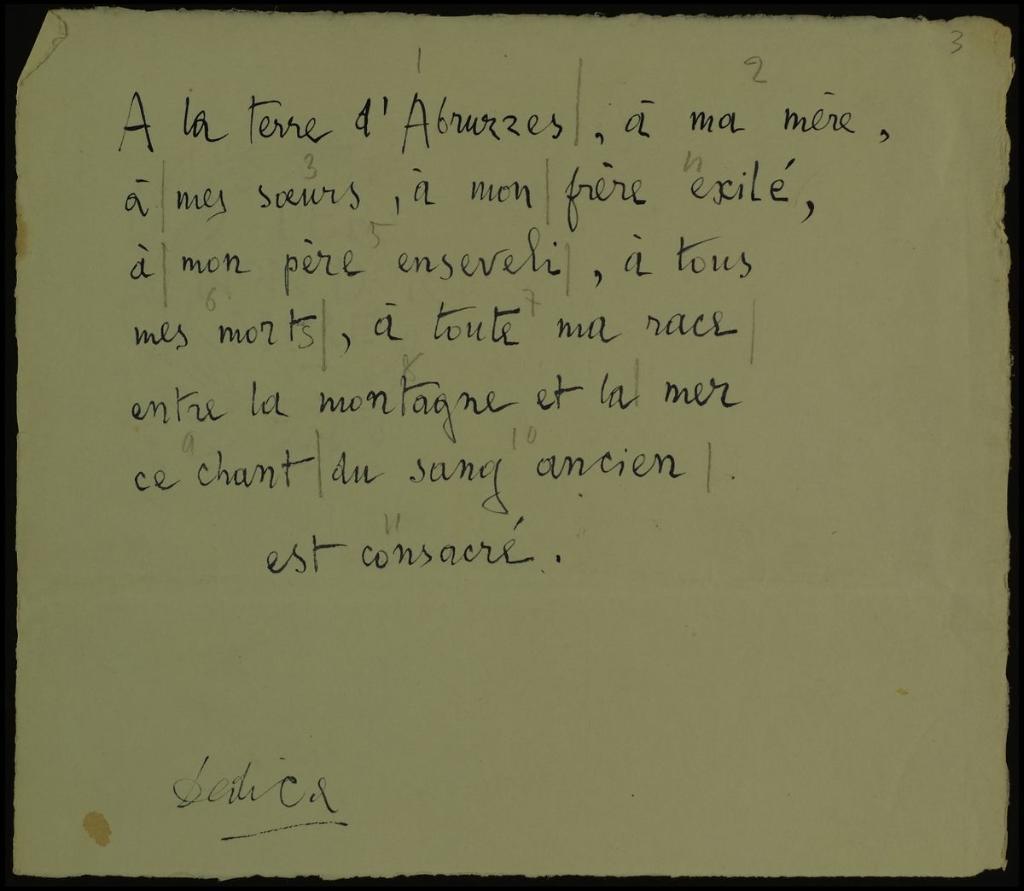 3
1 2
A la terre d'Abruzzes|, à ma mère,
3 4
à|mes sœurs, à mon|frère exilé,
5
à|mon père enseveli|, à tous
6 7
mes morts|, à toute ma race|
8
entre la montagne et la| mer
9 10
ce chant|du sang ancien|.
11
est consacré.
Dedica